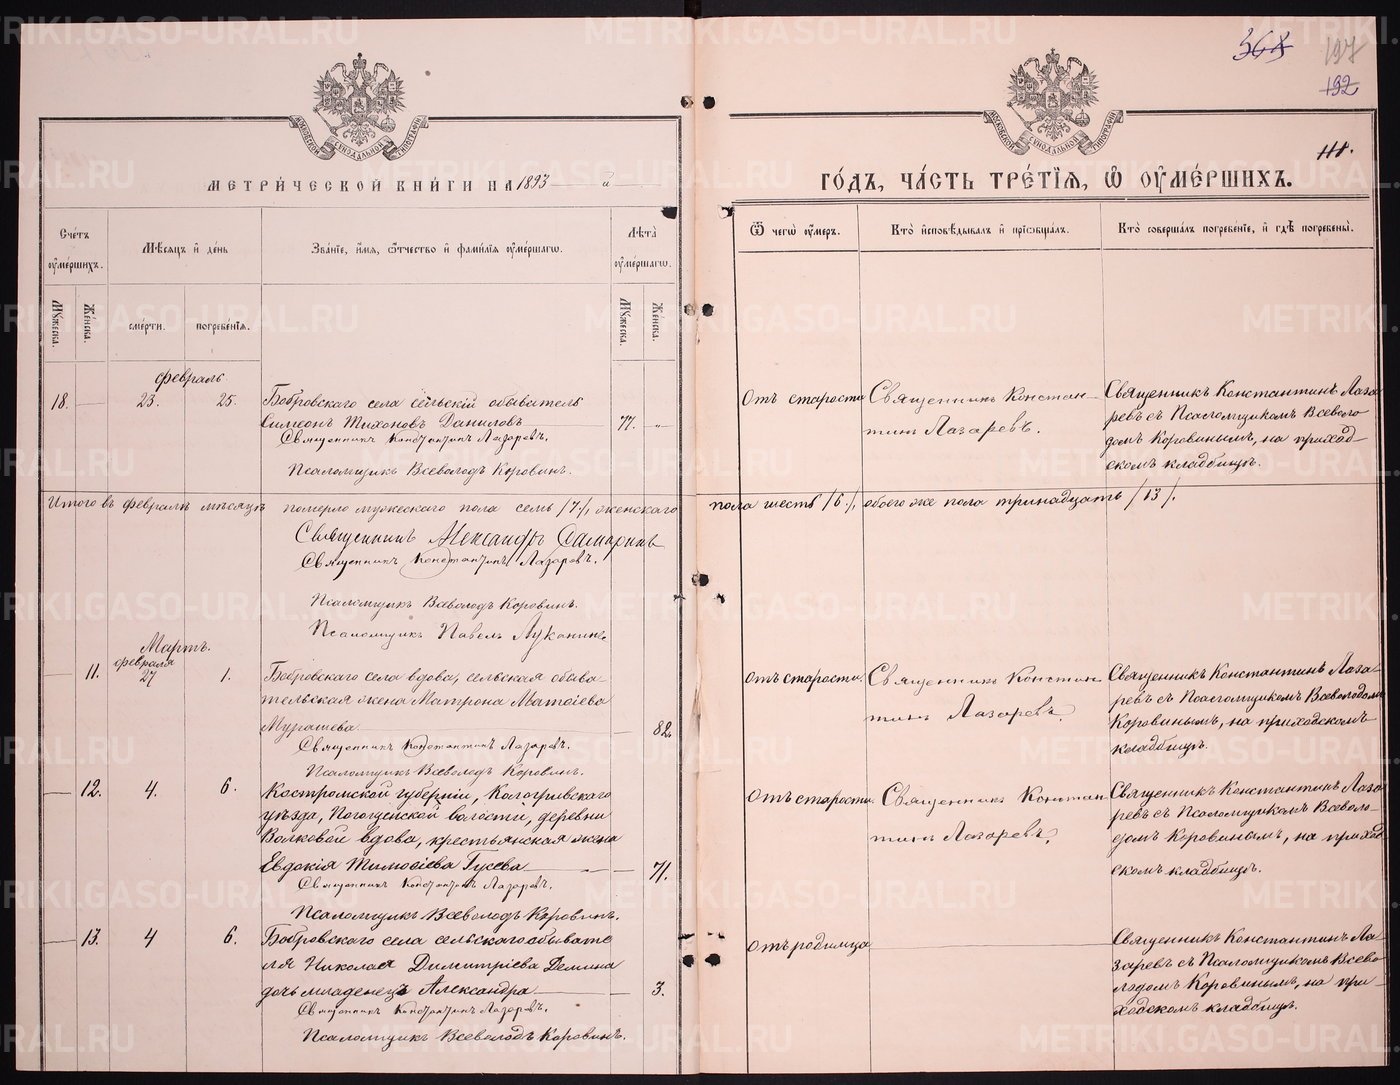 368 197
192
111.
МЕТРИ́ЧЕСКОЙ КНИ́ГИ НА 1893 й
ГО́ДЪ, ЧА́СТЬ ТРЕ́ТІЯ, Ѽ ОУ҆МЕ́РШИХЪ.
МОСКОВСКОЙ СѴНОДАЛЬНОЙ ТИПОГРАФІИ
МОСКОВСКОЙ СѴНОДАЛЬНОЙ ТИПОГРАФІИ
Сче́тъ оу҆ме́ршихъ.
Мѣ́сяцъ и҆ де́нь
Зва́нїе, и҆́мя, ѻ҆́тчество и҆ фами́лїя оу҆ме́ршагѡ.
Лѣ́та оу҆ме́ршагѡ.
Ѿ чегѡ̀ оу҆́меръ.
Кто̀ и҆сповѣ́дывалъ и҆ прїѡбща́лъ.
Кто̀ соверша́лъ погребе́нїе, и҆ гдѣ̀ погребены̀.
Мꙋ́жеска.
Же́нска.
сме́рти.
погребе́нїя.
Мꙋ́жеска.
Же́нска.
февраль
18. 23. 25.
Бобровскаго села сельскій обыватель
Симеонъ Тихоновъ Даниловъ 77.
Священникъ Константинъ Лазаревъ.
Псаломщикъ Всеволодъ Коровин.
Отъ старости
Священникъ Констан-
тинъ Лазаревъ.
Священникъ Константинъ Лаза
ревъ съ Псаломщикомъ Всеволо
домъ Коровинымъ, на приход-
скомъ кладбищѣ.
Итого въ февралѣ мѣсяцѣ померло мужескаго пола семь /7/, женскаго пола шесть /6/, обоего же пола тринадцать /13/.
Священникъ Александръ Самаринъ
Священникъ Константинъ Лазаревъ.
Псаломщикъ Всеволодъ Коровин.
Псаломщикъ Павелъ Луканинъ
Мартъ.
февраля
11. 27 1.
Бобровскаго села вдова, сельская обыва-
тельская жена Матрона Матѳіева
Мурашева 82.
Священникъ Константинъ Лазаревъ.
Псаломщикъ Всеволодъ Коровин.
Отъ старости.
Священникъ Констан
тинъ Лазаревъ.
Священникъ Константинъ Лаза-
ревъ съ Псаломщикомъ Всеволодомъ
Коровинымъ, на приходскомъ
кладбищѣ.
12. 4. 6.
Костромской губерніи, Кологривскаго
уѣзда, волости, деревни
Волковой вдова, крестьянская жена
Евдокія Тимоѳіева Гусева 71.
Священникъ Константинъ Лазаревъ.
Псаломщикъ Всеволодъ Коровинъ.
Отъ старости.
Священникъ Констан
тинъ Лазаревъ.
Священникъ Константинъ Лаза
ревъ съ Псаломщикомъ Всеволо-
домъ Коровинымъ, на приход
скомъ кладбищѣ.
13. 4 6.
Бобровскаго села сельскаго обывате
ля Николая Димитріева Демина
дочь младенецъ Александра 3.
Священникъ Константинъ Лазаревъ.
Псаломщикъ Всеволодъ Коровинъ.
Отъ родимца
Священникъ Константинъ Ла-
заревъ съ Псаломщикомъ Всево-
лодомъ Коровинымъ, на при-
ходскомъ кладбищѣ.
METRIKI.GASO-URAL.RU